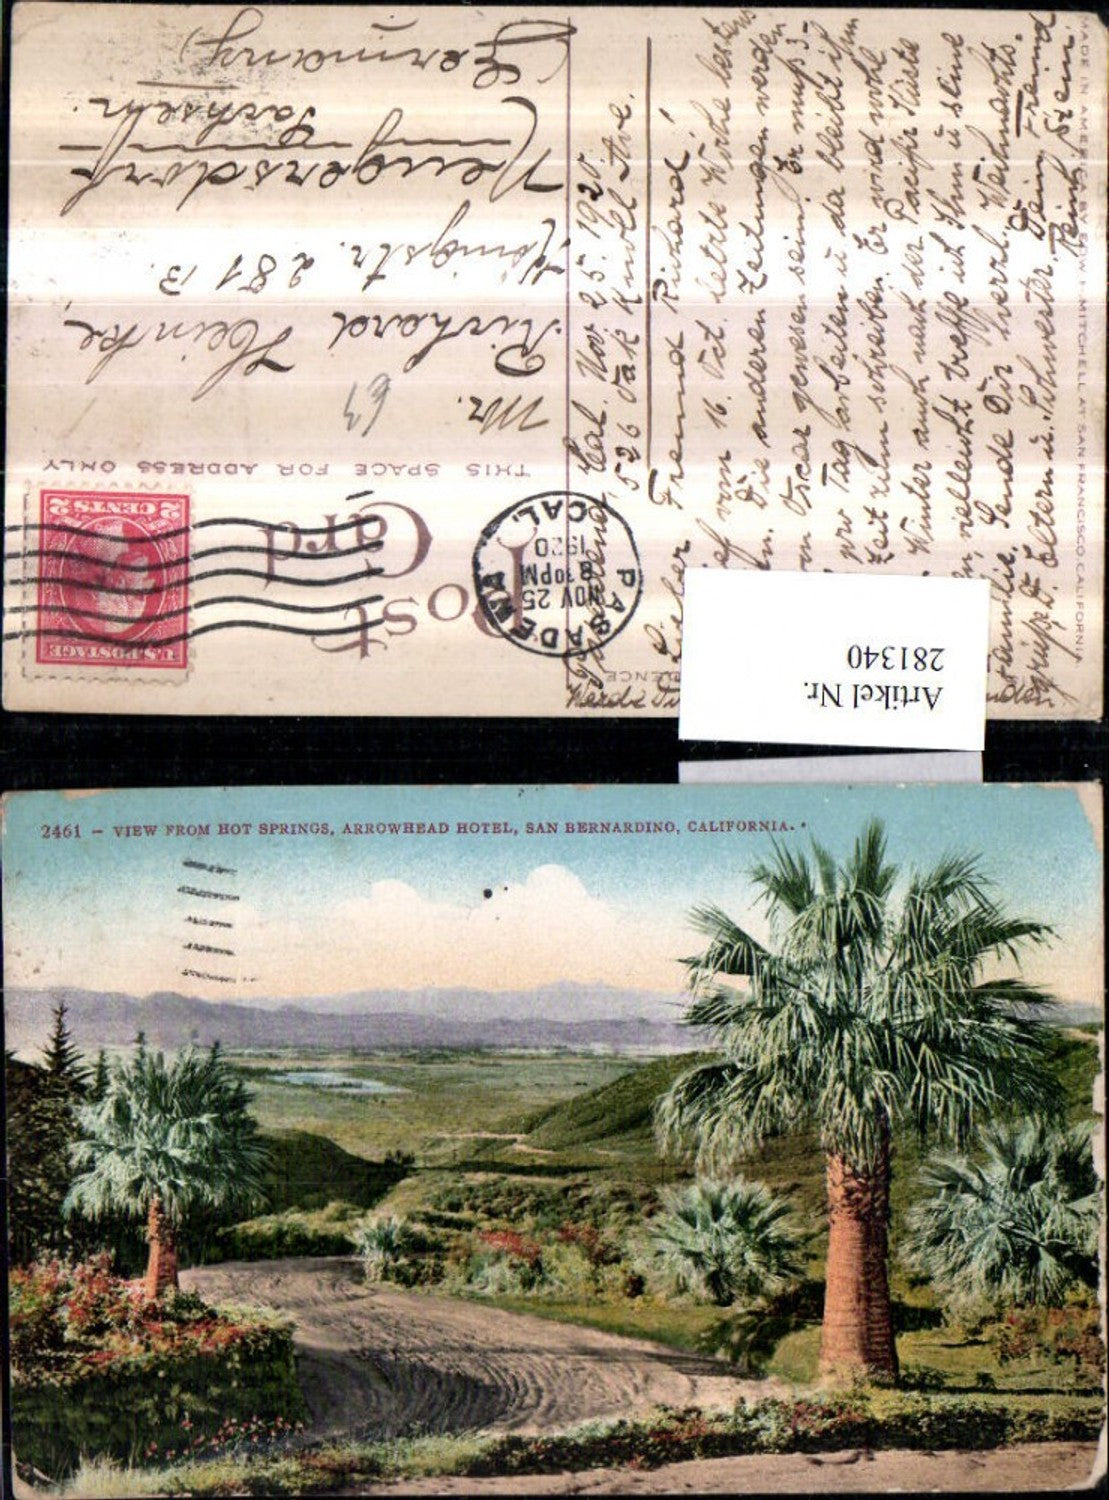 Post Card
THIS SPACE FOR ADDRESS ONLY
U.S. POSTAGE
2 CENTS 2
PASADENA
NOV 25
8 30PM
1920
CAL.
Mr.
63
Richard Heinke,
Königstr. 281 B.
Neugersdorf
Sachsen.
(Germany)
Pasadena, Cal. Nov 25. 1920.
526 Oak Knoll Ave.
Lieber Freund Richard!
vom 16. Oct. letzte Woche
Die anderen Zeitungen werden
von Oscar gewesen sein. Er muß 3-
pro Tag arbeiten u da bleibt ihm
Zeit zum schreiben. Er wird wohl
Winter auch nach der Pacific Küste
vielleicht treffe ich Ihm u seine
Familie. Sende Dir herzl. Weihnachts-
grüße D. Eltern u. Schwester. Dein Freund
Reinh Stein
MADE IN AMERICA BY EDW. H. MITCHELL AT SAN FRANCISCO, CALIFORNIA
Artikel Nr.
281340
2461 – VIEW FROM HOT SPRINGS, ARROWHEAD HOTEL, SAN BERNARDINO, CALIFORNIA.